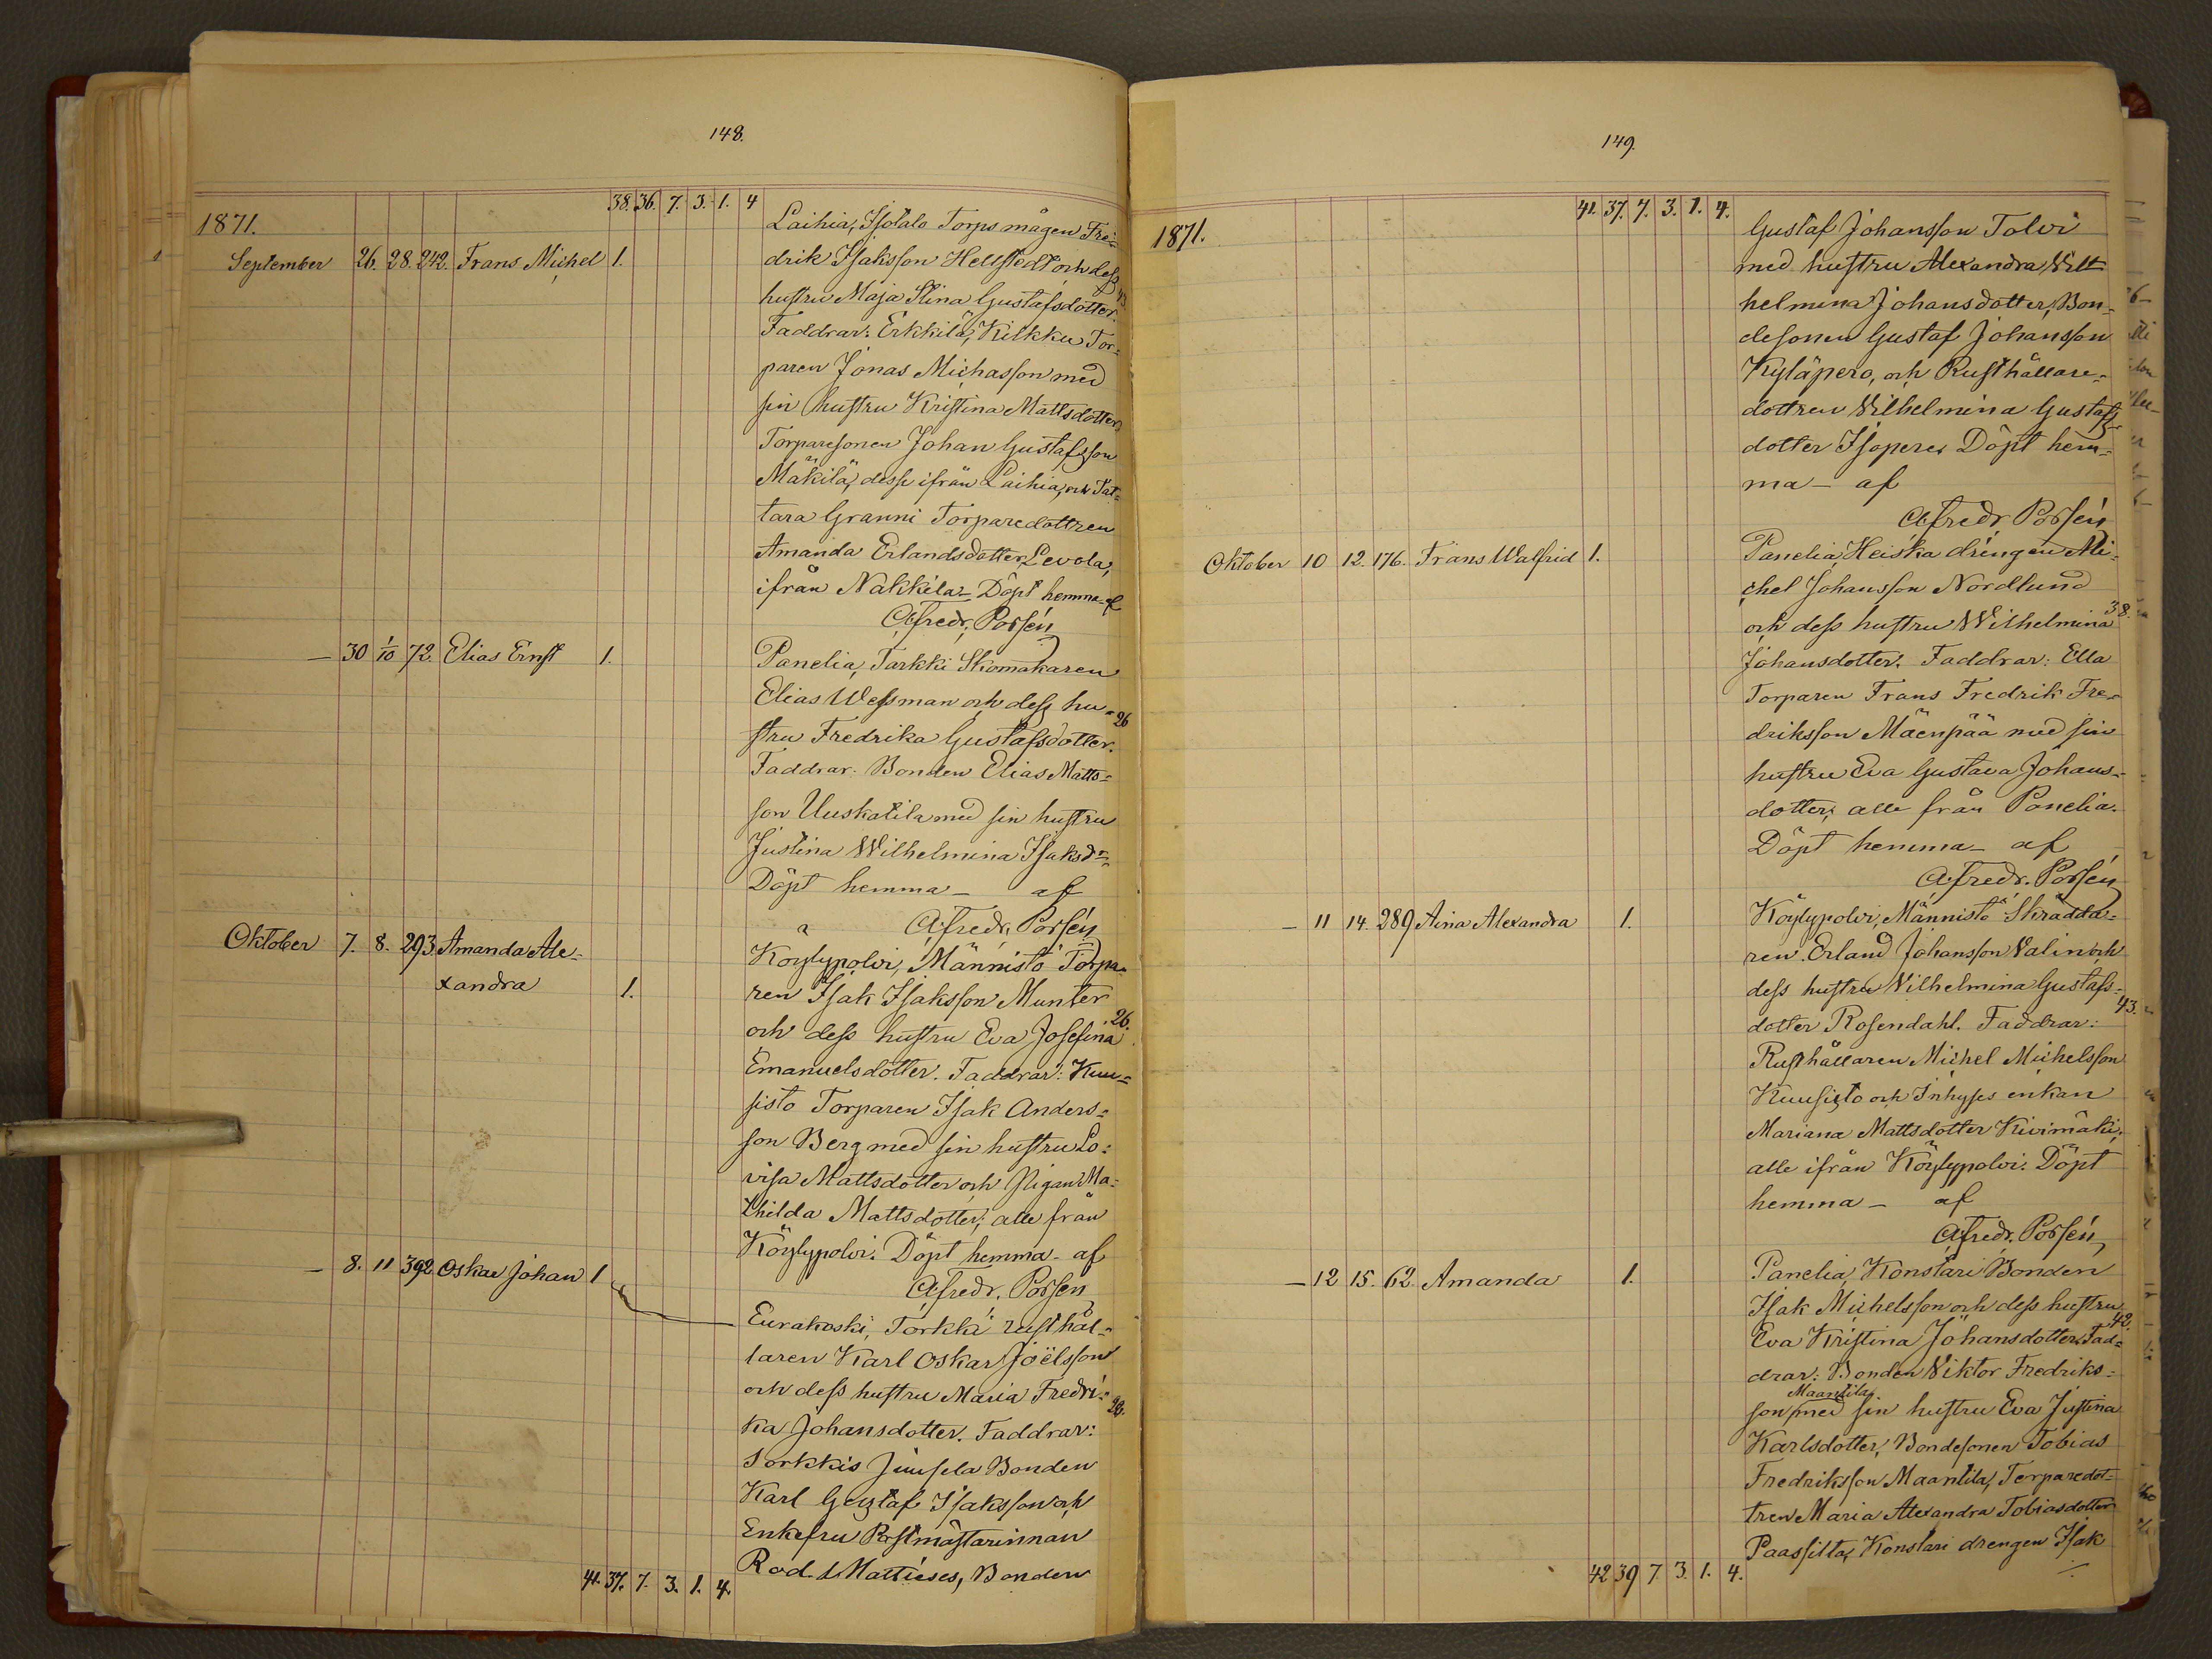 148.
38. 36. 7. 3. 1. 4
1871.
Laihia, Isotalo Torpsmågen Fre-
September 26. 28. 242. Frans Michel 1. drik Isaksson Hellstedt och dess
hustru Maja Stina Gustafsdotter. 43
Faddrar: Erkkilä, Kilkku Tor-
paren Jonas Michasson med
sin hustru Kristina Mattsdotter,
Torparesonen Johan Gustafsson
Mäkilä, desse ifrån Laihia, och Tat-
tara Granni Torparedottren
Amanda Erlandsdotter Levola,
ifrån Nakkila - Döpt hemma - af
A.fredr. Porsén
— 30 1/10 72. Elias Ernst 1. Panelia, Tarkki Skomakaren
Elias Wessman och dess hu- 26
stru Fredrika Gustafsdotter.
Faddrar: Bonden Elias Matts-
son Uuskatila med sin hustru
Justina Wilhelmina Isaksdr.
Döpt hemma - af
A.fredr. Porsén
Oktober 7. 8. 293. Amanda Ale- Köylypolvi, Männistö Torpa-
xandra 1. ren Isak Isaksson Munter
och dess hustru Eva Josefina 26.
Emanuelsdotter. Faddrar: Kuu-
sisto Torparen Isak Anders-
son Berg med sin hustru Lo-
visa Mattsdotter och Pigan Ma-
thilda Mattsdotter; alle från
Köylypolvi. Döpt hemma - af
A.fredr. Porsén
— 8. 11 392 Oskar Johan 1
Eurakoski, Torkki rusthål-
laren Karl Oskar Joëlsson
och dess hustru Maria Fredri- 28.
ka Johansdotter. Faddrar:
Sorkkis Juusela Bonden
Karl Gustaf Isaksson och
Enkefru Postmästarinnan
Rod. Mattieses, Bonden
41. 37. 7. 3. 1. 4.
149.
41. 37. 7. 3. 1. 4.
1871.
Gustaf Johansson Tolvi
med hustru Alexandra Vill-
helmina Johansdotter, Bon-
desonen Gustaf Johansson
Kyläpero, och Rusthållare-
dottren Vilhelmina Gustafs-
dotter Isopere. Döpt hem-
ma - af
A.fredr. Porsén
Oktober 10 12. 176. Frans Walfrid 1. Panelia, Heiska drängen Mi-
chel Johansson Nordlund
och dess hustru Wilhelmina 38.
Johansdotter. Faddrar: Ella
Torparen Frans Fredrik Fre-
driksson Mäenpää med sin
hustru Eva Gustava Johans-
dotter; alle från Panelia.
Döpt hemma - af
A.fredr. Porsén
— 11 14. 289 Aina Alexandra 1. Köylypolvi, Männistö Skrädda-
ren Erland Johansson Valin och
dess hustru Vilhelmina Gustafs-
dotter Rosendahl. Faddrar: 43.
Rusthållaren Michel Michelsson
Kuusisto och Inhyses enkan
Mariana Mattsdotter Kivimäki,
alle ifrån Köylypolvi. Döpt
hemma - af
A.fredr. Porsén
— 12 15. 62. Amanda 1. Panelia, Konstari Bonden
Isak Michelsson och dess hustru
Eva Kristina Johansdotter. Fad- 42.
drar: Bonden Viktor Fredriks-
Maantila
son med sin hustru Eva Justina
Karlsdotter, Bondesonen Tobias
Fredriksson Maantila, Torparedot-
tren Maria Alexandra Tobiasdotter
Paassilta, Konstari drengen Isak
42 39 7. 3. 1. 4.